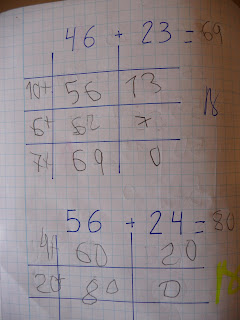 46 + 23 = 69
10+ 56 13
6+ 62 7
7+ 69 0
56 + 24 = 80
4+ 60 20
20+ 80 0